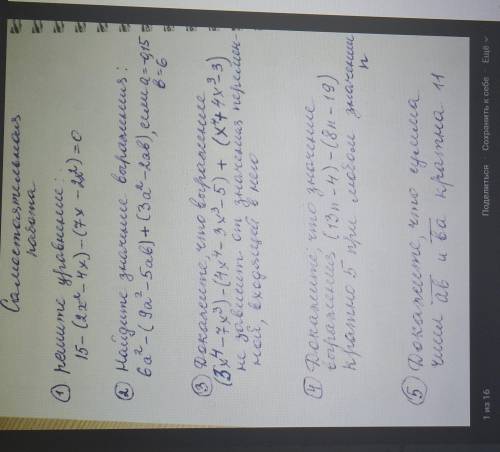 Самостоятельная
работа
① решите уравнение:
15 - (2x² - 4x) - (7x - 2x²) = 0
② Найдите значение выражения:
6a² - (9a² - 5ab) + (3a² - 2ab), если a = -0,15
b = 6
③ Докажите, что выражение
(3x⁴ - 7x³) - (4x⁴ - 3x³ - 5) + (x⁴ + 4x³ - 3)
не зависит от значения перемен-
ной, входящей в него
④ Докажите, что значение
выражения (13n - 4) - (8n - 19)
кратно 5 при любом значении
n
⑤ Докажите, что сумма
чисел ab и ba кратна 11
1 из 16 Поделиться Сохранить к себе Ещё